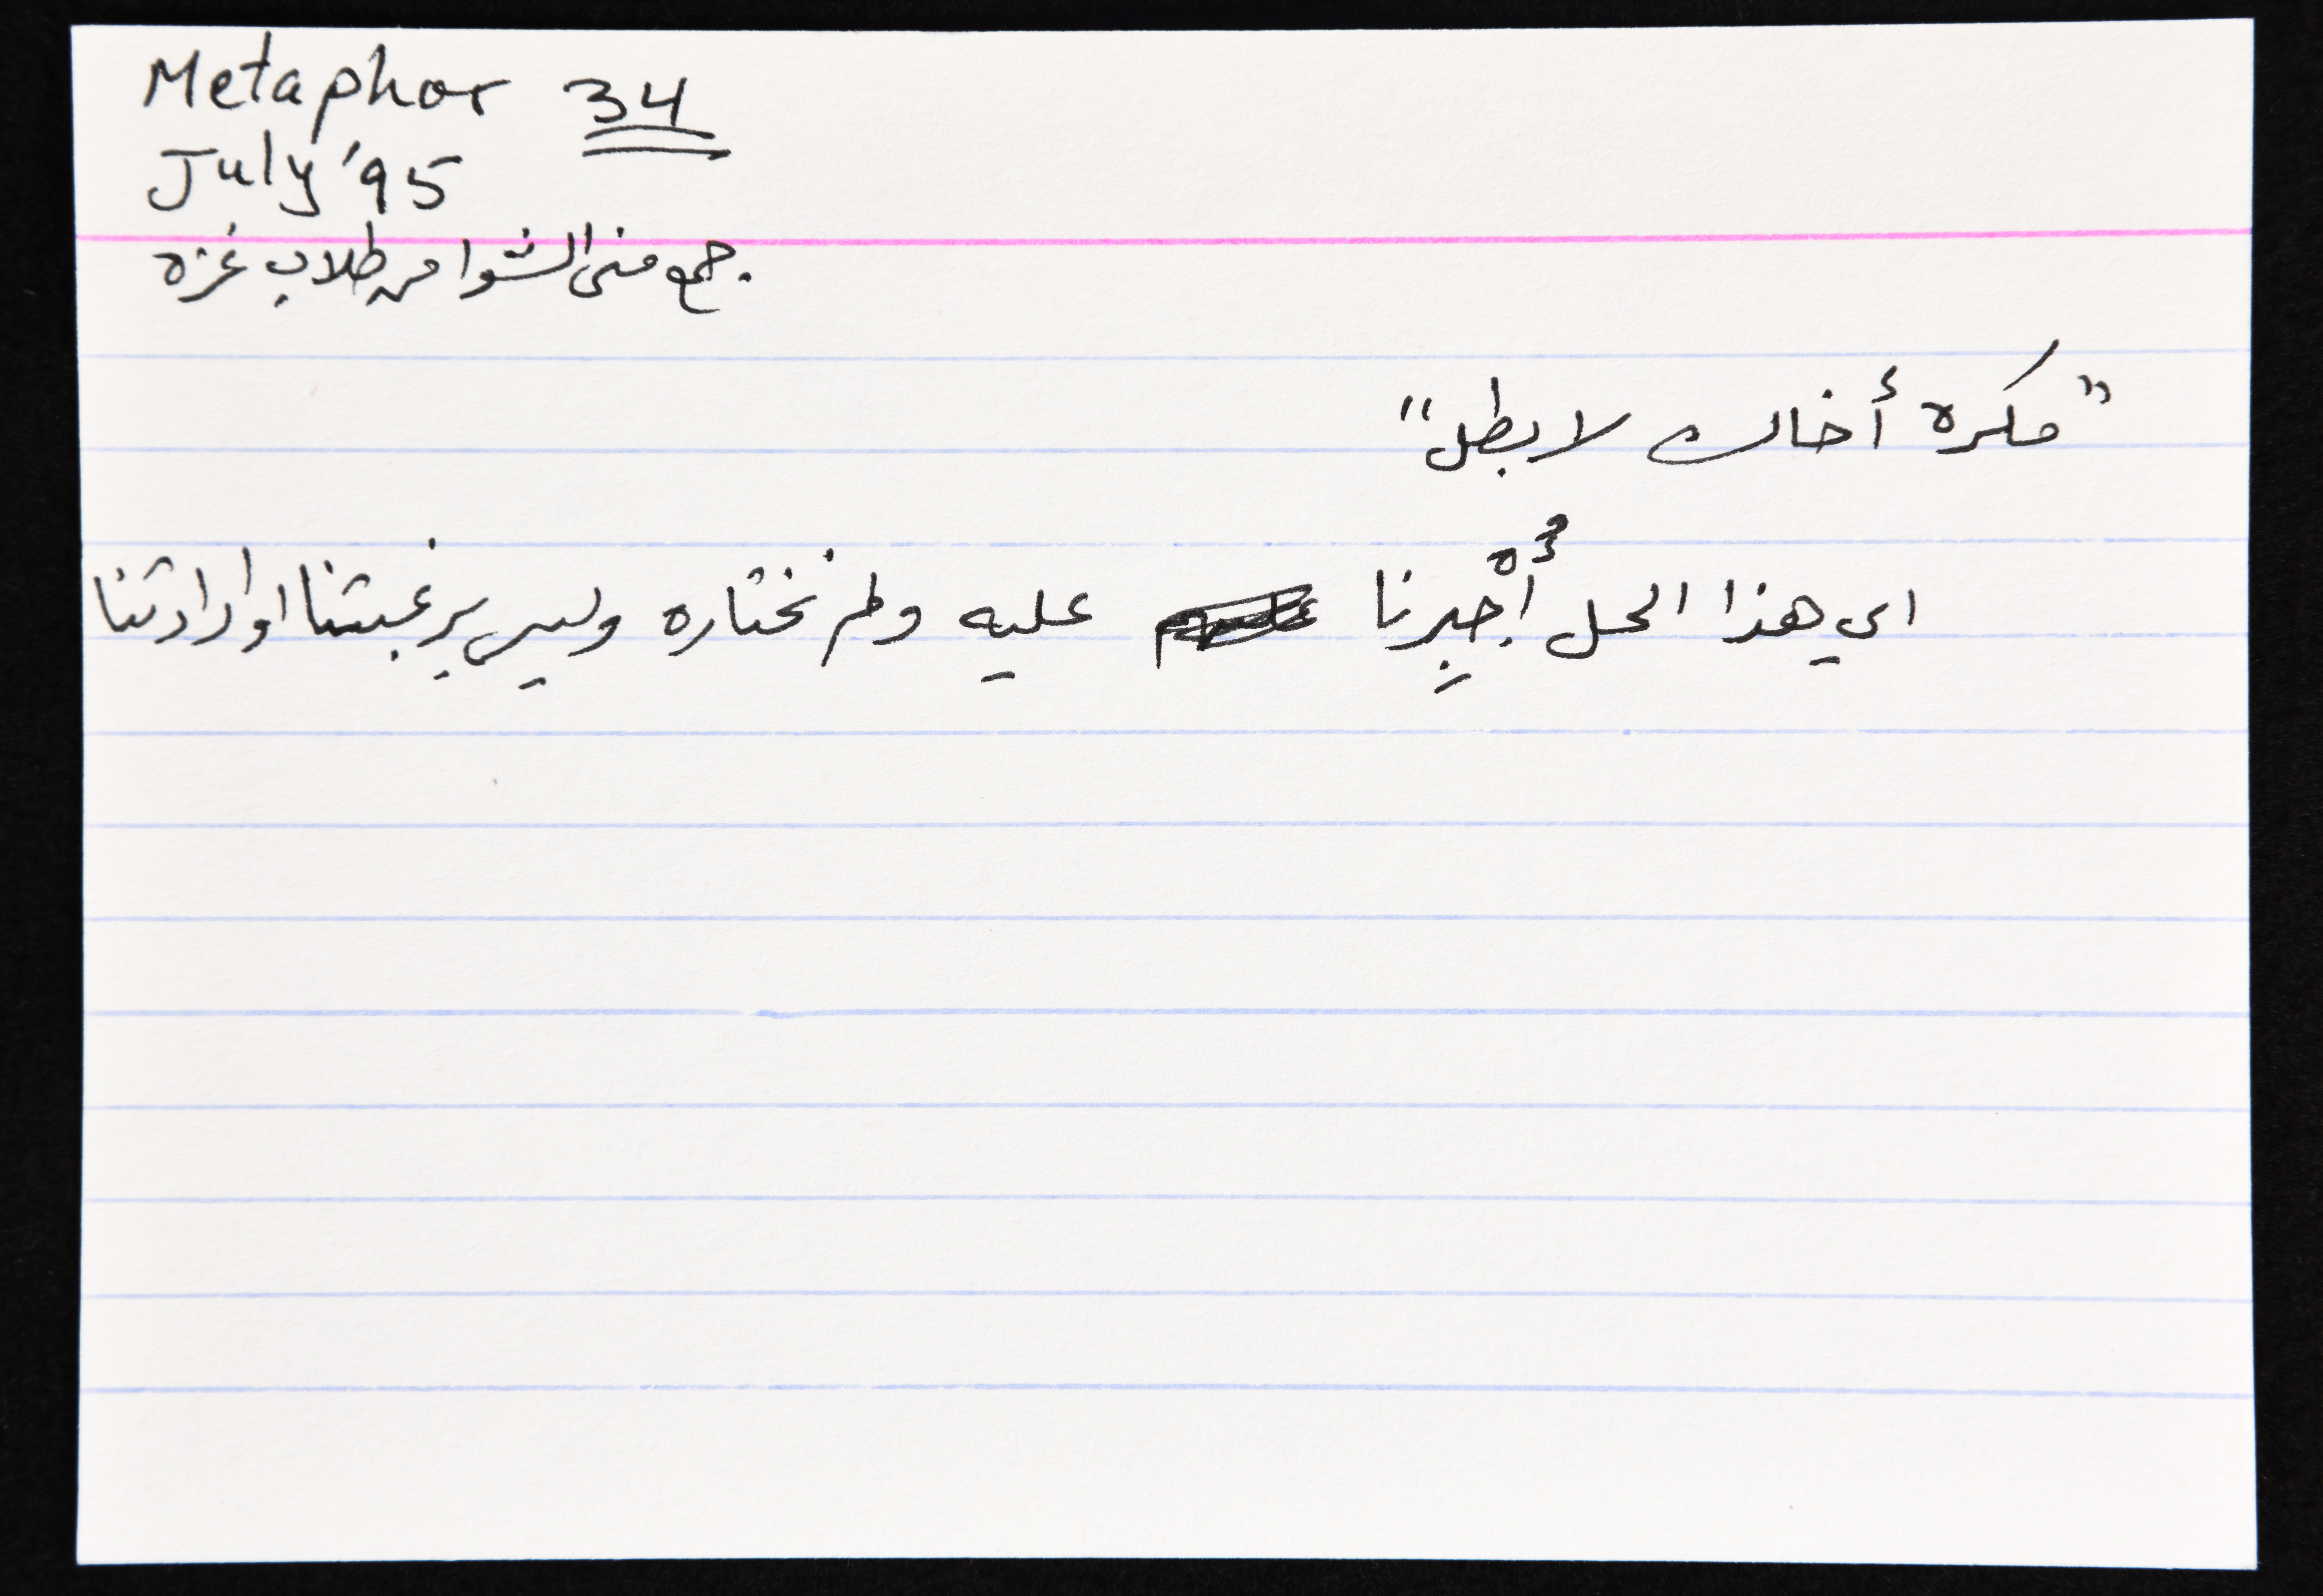 Metaphor 34
July '95
جمع منى الشوا من طلاب غزه
"مكره أخاك لا بطل"
اي هذا الحل أُجْبِرنا عليه ولم نختاره وليس برغبتنا او ارادتنا